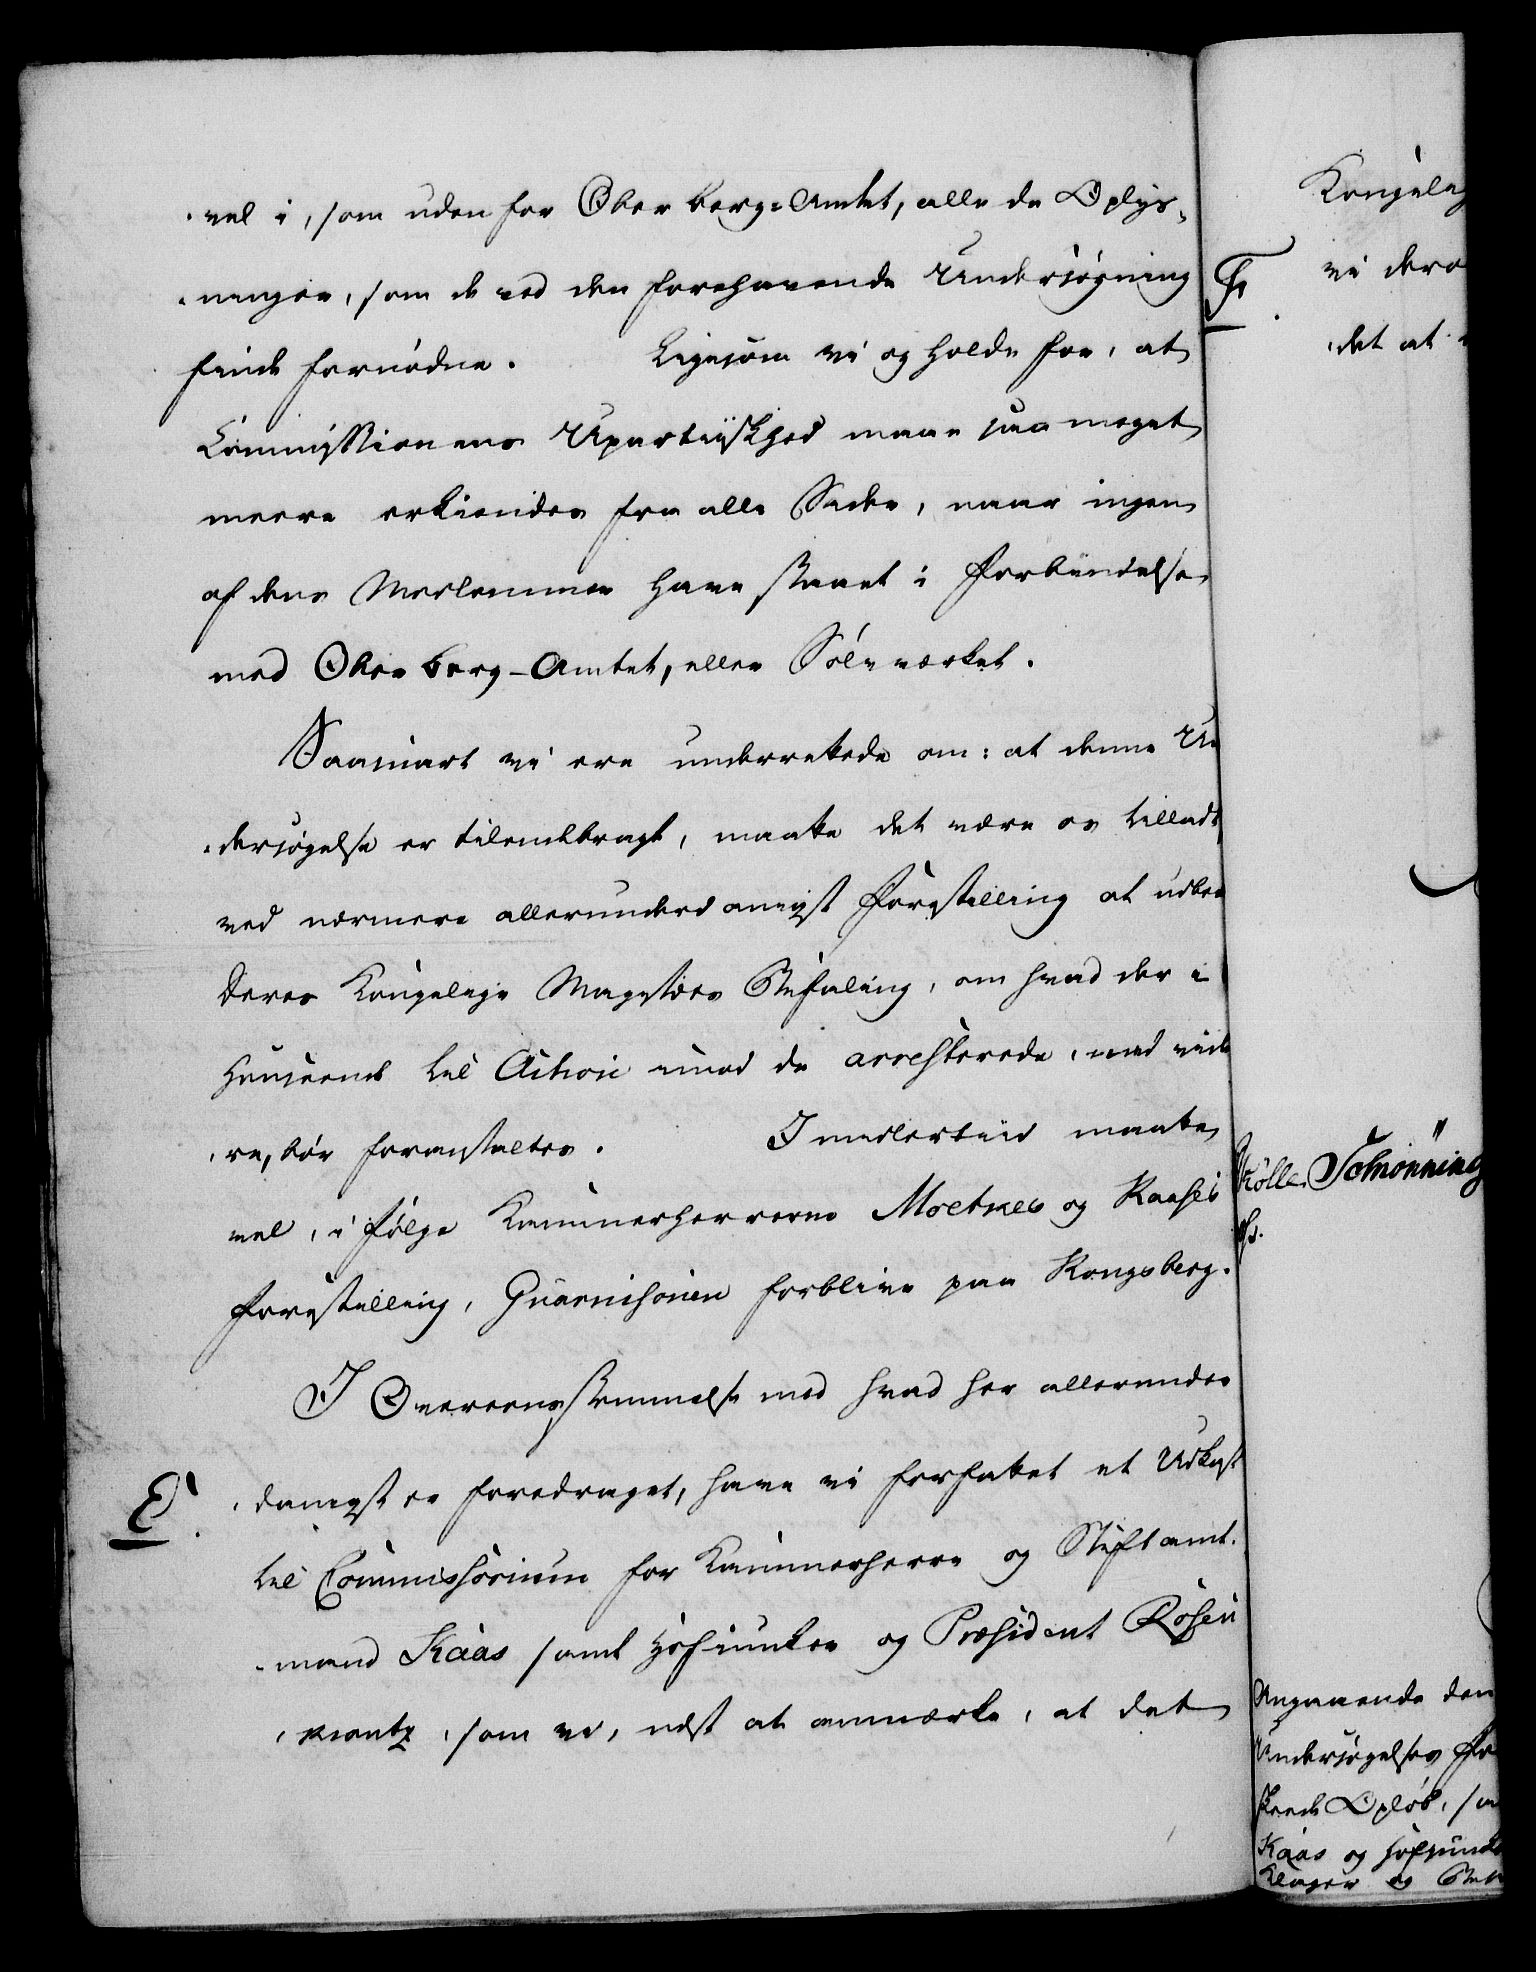 vel i, som uden for Ober berg-Amtet, alle de Oplys-
ninger, som de ved den forehavende Undersøgning
finde fornødne. Ligesom vi og holde for, at
Commissionens Upartiiskhed maae saa meget
meere erkiendes fra alle Sider, naar ingen
af dens Medlemmer have staaet i Forbindelse
med Ober berg-Amtet, eller Sølvværket.
Saasnart vi ere underrettede om: at denne Un
dersøgelse er tilendebragt, maatte det være os tilladt,
ved nærmere allerunderdanigst Forestilling at udbede
Deres Kongelige Majestæts Befaling, om hvad der i
Henseende til Action imod de arresterede, med vide
re, bør foranstaltes. Imidlertiid maatte
vel, i Følge Kammerherrerne Moltkes og Kaases
Forestilling, Guarnisonen forblive paa Kongsberg.
I Overeensstemmelse med hvad her allerunder
E. danigst er foredraget, have vi forfattet et Udkast
til Commissorium for Kammerherre og Stiftamt-
mand Kaas samt Hofjunker og Præsident Rosen
krantz, som vi, næst at anmærke, at det
Kongelig
F. vi dero
det at
Schønning
Angaaende den
Undersøgelses
skeede Opløb, som
Kaas og Hofjunk
Klager og